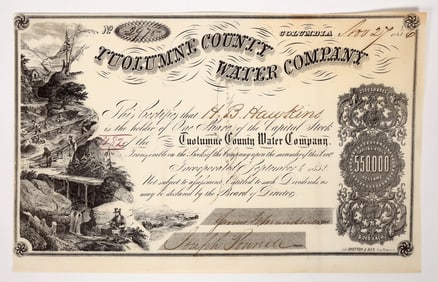 No
COLUMBIA Nov 27 1856
TUOLUMNE COUNTY
WATER COMPANY
This Certifies that H. B. Hawkins
is the holder of One Share of the Capital Stock
of the Tuolumne County Water Company.
Transferable on the Books of the Company upon the surrender of this Cert.
Incorporated September 4, 1852.
Not subject to assessment. Entitled to such Dividends as
may be declared by the Board of Directors
$550,000
Joseph Pownell